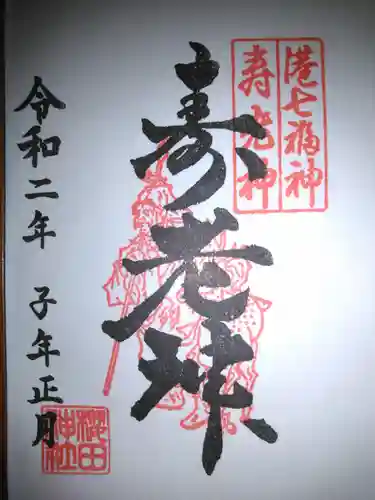 港七福神
寿老神
寿老神
令和二年 子年正月
櫻田神社